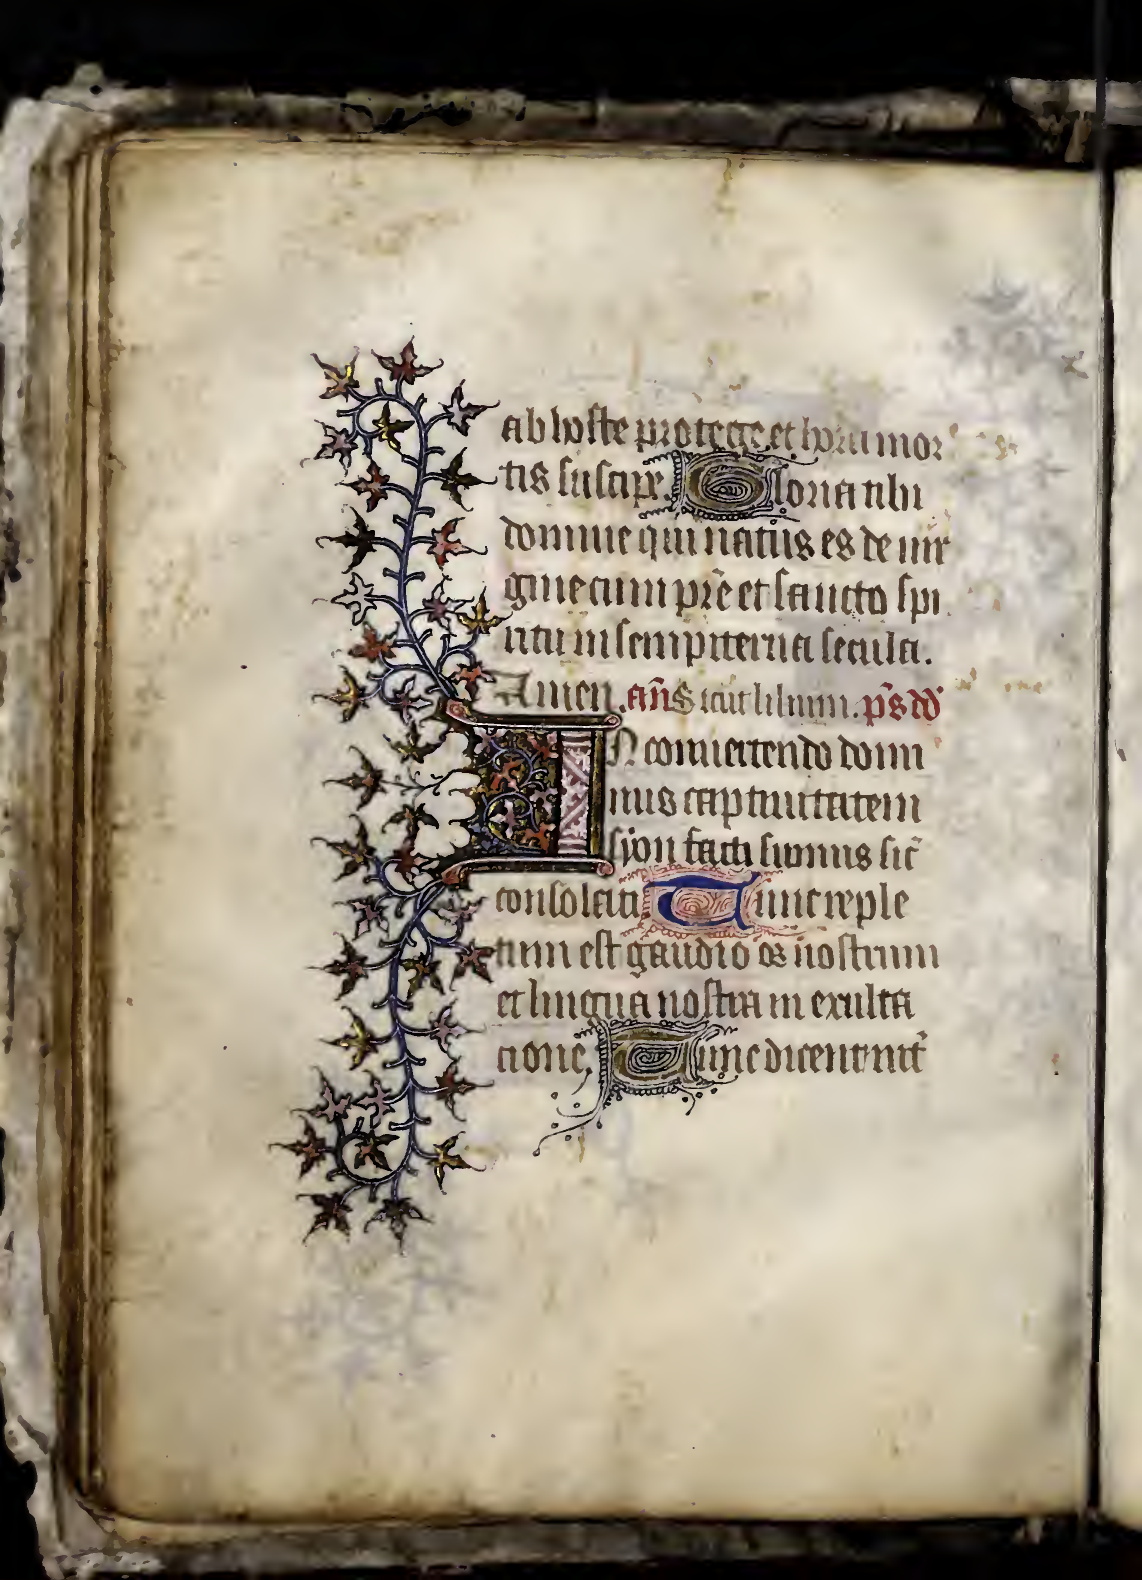 ab hoste protege et hora mor
tis suscipe. Gloria tibi
domine qui natus es de uir
gine cum pr̄e et sancto spi
ritu in sempiterna secula.
Amen. an̄. Sicut lilium. ps̄ dd̄
IN conuertendo domi
nus captiuitatem
syon facti sumus sic̄
consolati Tunc reple
tum est gaudio os nostrum
et lingua nostra in exulta
cione. Tunc dicent int̄